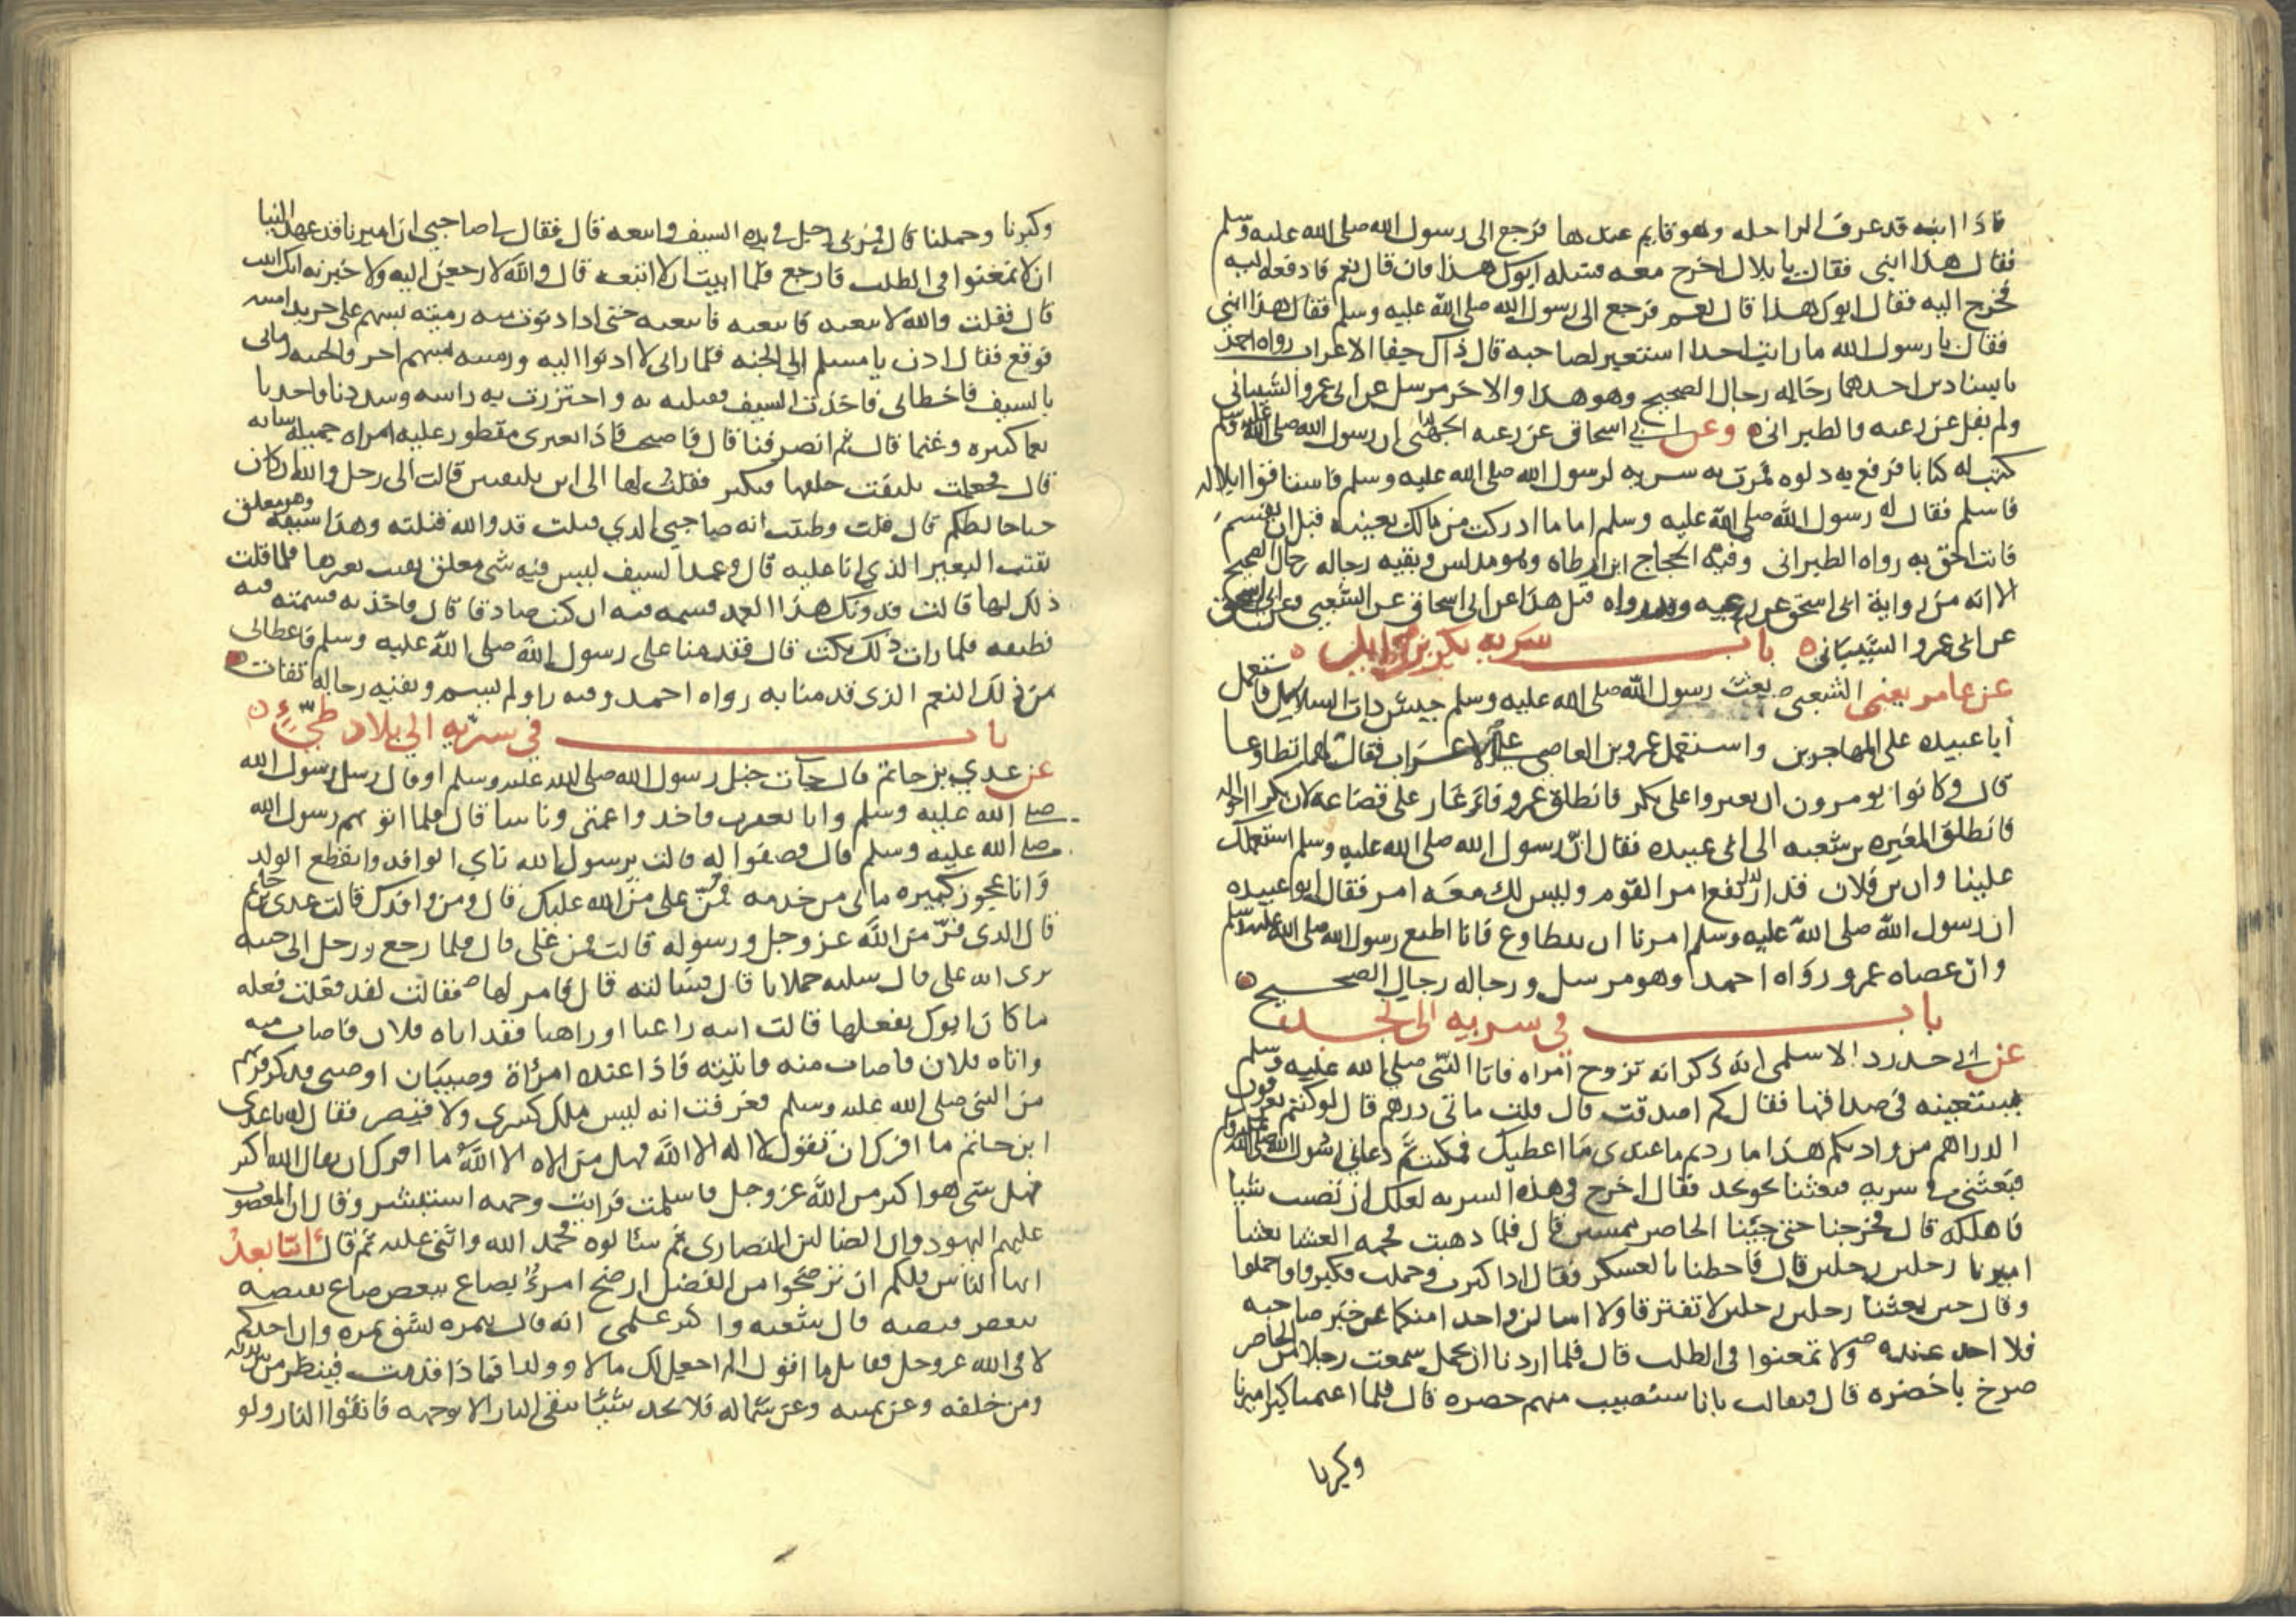 فاذا ابنه قد عرف الراحله وهو قايم عندها فرجع الى رسول الله صلى الله عليه وسلم
فقال هذا ابنى فقال يا بلال اخرج معه فسله ابوك هذا فان قال نعم فادفعه اليه
فخرج اليه فقال ابوك هذا قال نعم فرجع الى رسول الله صلى الله عليه وسلم فقال هذا ابنى
فقال يا رسول الله ما رايت احدا استعبر لصاحبه قال ذاك جفا الاعراب رواه احمد
باسنادين احدهما رجاله رجال الصحيح وهو هذا والاخر مرسل عن ابى عمرو الشيبانى
ولم يقل عن رعيه والطبرانى وعن ابى اسحاق عن رعيه الجهنى ان رسول الله صلى الله عليه وسلم
كتب له كتابا فرقع به دلوه فمرت به سريه لرسول الله صلى الله عليه وسلم فاستاقوا ابلا له
فاسلم فقال له رسول الله صلى الله عليه وسلم اما ما ادركت من مالك بعينه قبل ان يقسم
فانت احق به رواه الطبرانى وفيه الحجاج ابن ارطاه وهو مدلس وبقيه رجاله رجال الصحيح
الا انه من رواية ابى اسحق عن رعيه وقد رواه قبل هذا عن ابى اسحاق عن الشعبى وعن ابى اسحق
عن ابى عمرو الشيبانى باب سريه بكر بن وايل
عن عامر يعنى الشعبى بعث رسول الله صلى الله عليه وسلم جيش ذات السلاسل فاستعمل
ابا عبيده على المهاجرين واستعمل عمرو بن العاصى على الاعراب فقال لهما تطاوعا
قال وكانوا يومرون ان يغيروا على بكر فانطلق عمرو فاغار على قضاعه لان بكرا اخواله
فانطلق المغيره بن شعبه الى ابى عبيده فقال ان رسول الله صلى الله عليه وسلم استعملك
علينا وان بن فلان قد ارتفع امر القوم وليس لك معه امر فقال ابو عبيده
ان رسول الله صلى الله عليه وسلم امرنا ان نتطاوع فانا اطيع رسول الله صلى الله عليه وسلم
وان عصاه عمرو رواه احمد وهو مرسل ورجاله رجال الصحيح
باب فى سريه الى نجد
عن ابى حدرد الاسلمى انه ذكر انه تزوج امراه فاتا النبى صلى الله عليه وسلم
يستعينه فى صداقها فقال كم اصدقت قال قلت ماتى درهم قال لو كنتم تغرفون
الدراهم من واديكم هذا ما زدتم ما عندى ما اعطيك فمكثت ثم دعانى رسول الله صلى الله عليه وسلم
فبعثنى فى سريه فبعثنا نحو نجد فقال اخرج فى هذه السريه لعلك ان تصيب شيا
فاهلكه قال فخرجنا حتى جينا الحاضر ممسين قال فلما ذهبت فحمه العشا بعثنا
اميرنا رجلين رجلين قال فاحطنا بالعسكر فقال اذا كبرت وحملت فكبروا واحملوا
وقال حين بعثنا رجلين رجلين لا تفترقا ولا اسالن واحدا منكما عن خبر صاحبه
فلا احد عنده ولا تمعنوا فى الطلب قال فلما اردنا ان نحمل سمعت رجلا من الحاضر
صرخ يا خضره قال فتفالت بانا سنصيب منهم خضره قال فلما اعتمنا كبر اميرنا
وكبرنا
وكبرنا وحملنا قال فمر بى رجل فى يده السيف واتبعه قال فقال لى صاحبى ان اميرنا قد عهد الينا
ان لا نمعنوا فى الطلب فارجع فلما ابيت ان لا اتبعه قال والله لا رجعن اليه ولا خبرنه انك ابيت
قال فقلت والله لاتبعنه فاتبعته فاتبعته حتى اذا دنوت منه رميته بسهم على جريدا متنه
فوقع فقال ادن يا مسلم الى الجنه فلما رانى لا ادنوا اليه ورميته بسهم اخر والجنه رمانى
بالسيف فاخطانى فاخذت السيف فقتلته به واحتززت به راسه وشددنا واحدنا
نعما كثيره وغنما قال ثم انصرفنا قال فاصبحت فاذا بعيرى مقطور عليه امراه جميله شابه
قال فجعلت تلتفت خلفها فتكبر فقلت لها الى اين تلتفتين قالت الى رجل والله ان كان
حيا خالطكم قال قلت وظننت انه صاحبى الذى قتلت قد والله قتلته وهذا سيفه وهو معلق
بقتب البعير الذى انا عليه قال وغمد السيف ليس فيه شى معلق بقتب بعيرها فلما قلت
ذلك لها قالت فدونك هذا الغمد فشمه فيه ان كنت صادقا قال فاخذته فشمته فيه
فطبقه فلما رات ذلك بكت قال فقدمنا على رسول الله صلى الله عليه وسلم فاعطانى
من ذلك النعم الذى قدمنا به رواه احمد وفيه راو لم يسم وبقيه رجاله ثقات
باب فى سريه الى بلاد طيئ
عن عدي بن حاتم قال جات خيل رسول الله صلى الله عليه وسلم او قال رسل رسول الله
صلى الله عليه وسلم وانا بعقرب فاخذوا عمتى وناسا قال فلما اتو بهم رسول الله
صلى الله عليه وسلم قال فصفوا له قالت يرسول الله ناى الوافد وانقطع الولد
وانا عجوز كبيره ما بى من خدمه فمن على من الله عليك قال ومن وافدك قالت عدى بن حاتم
قال الذى فر من الله عز وجل ورسوله قالت فمن على قال فلما رجع ورجل الى جنبه
نرى انه على قال سليه حملانا قال فسالته قال فامر لها فقالت لقد فعلت فعله
ما كان ابوك يفعلها قالت ايته راغبا او راهبا فقد اتاه فلان فاصاب منه
واتاه فلان فاصاب منه فاتيته فاذا عنده امرئاة وصبيان او صبى فذكر قربهم
من النبى صلى الله عليه وسلم فعرفت انه ليس ملك كسرى ولا قيصر فقال له يا عدى
ابن حاتم ما افرك ان تقول لا اله الا الله فهل من الاه الا الله ما افرك ان يقال الله اكبر
فهل شى هوا كبر من الله عز وجل فاسلمت فرايت وجهه استبشر وقال ان المغضوب
عليهم اليهود وان الضالين النصارى ثم سئالوه فحمد الله واثنى عليه ثم قال اما بعد
ايها الناس فلكم ان ترضخوا من الفضل ارضخ امرؤ بصاع ببعض صاع بقبضه
ببعض قبضه قال شعبه واكثر علمى انه قال بتمره بشق تمره وان احدكم
لاقى الله عز وجل فقايل ما اقول الم اجعل لك مالا وولدا فماذا قدمت فينظر من بين يديه
ومن خلفه وعن يمينه وعن شماله فلا يجد شيئا يتقى النار الا بوجهه فاتقوا النار ولو